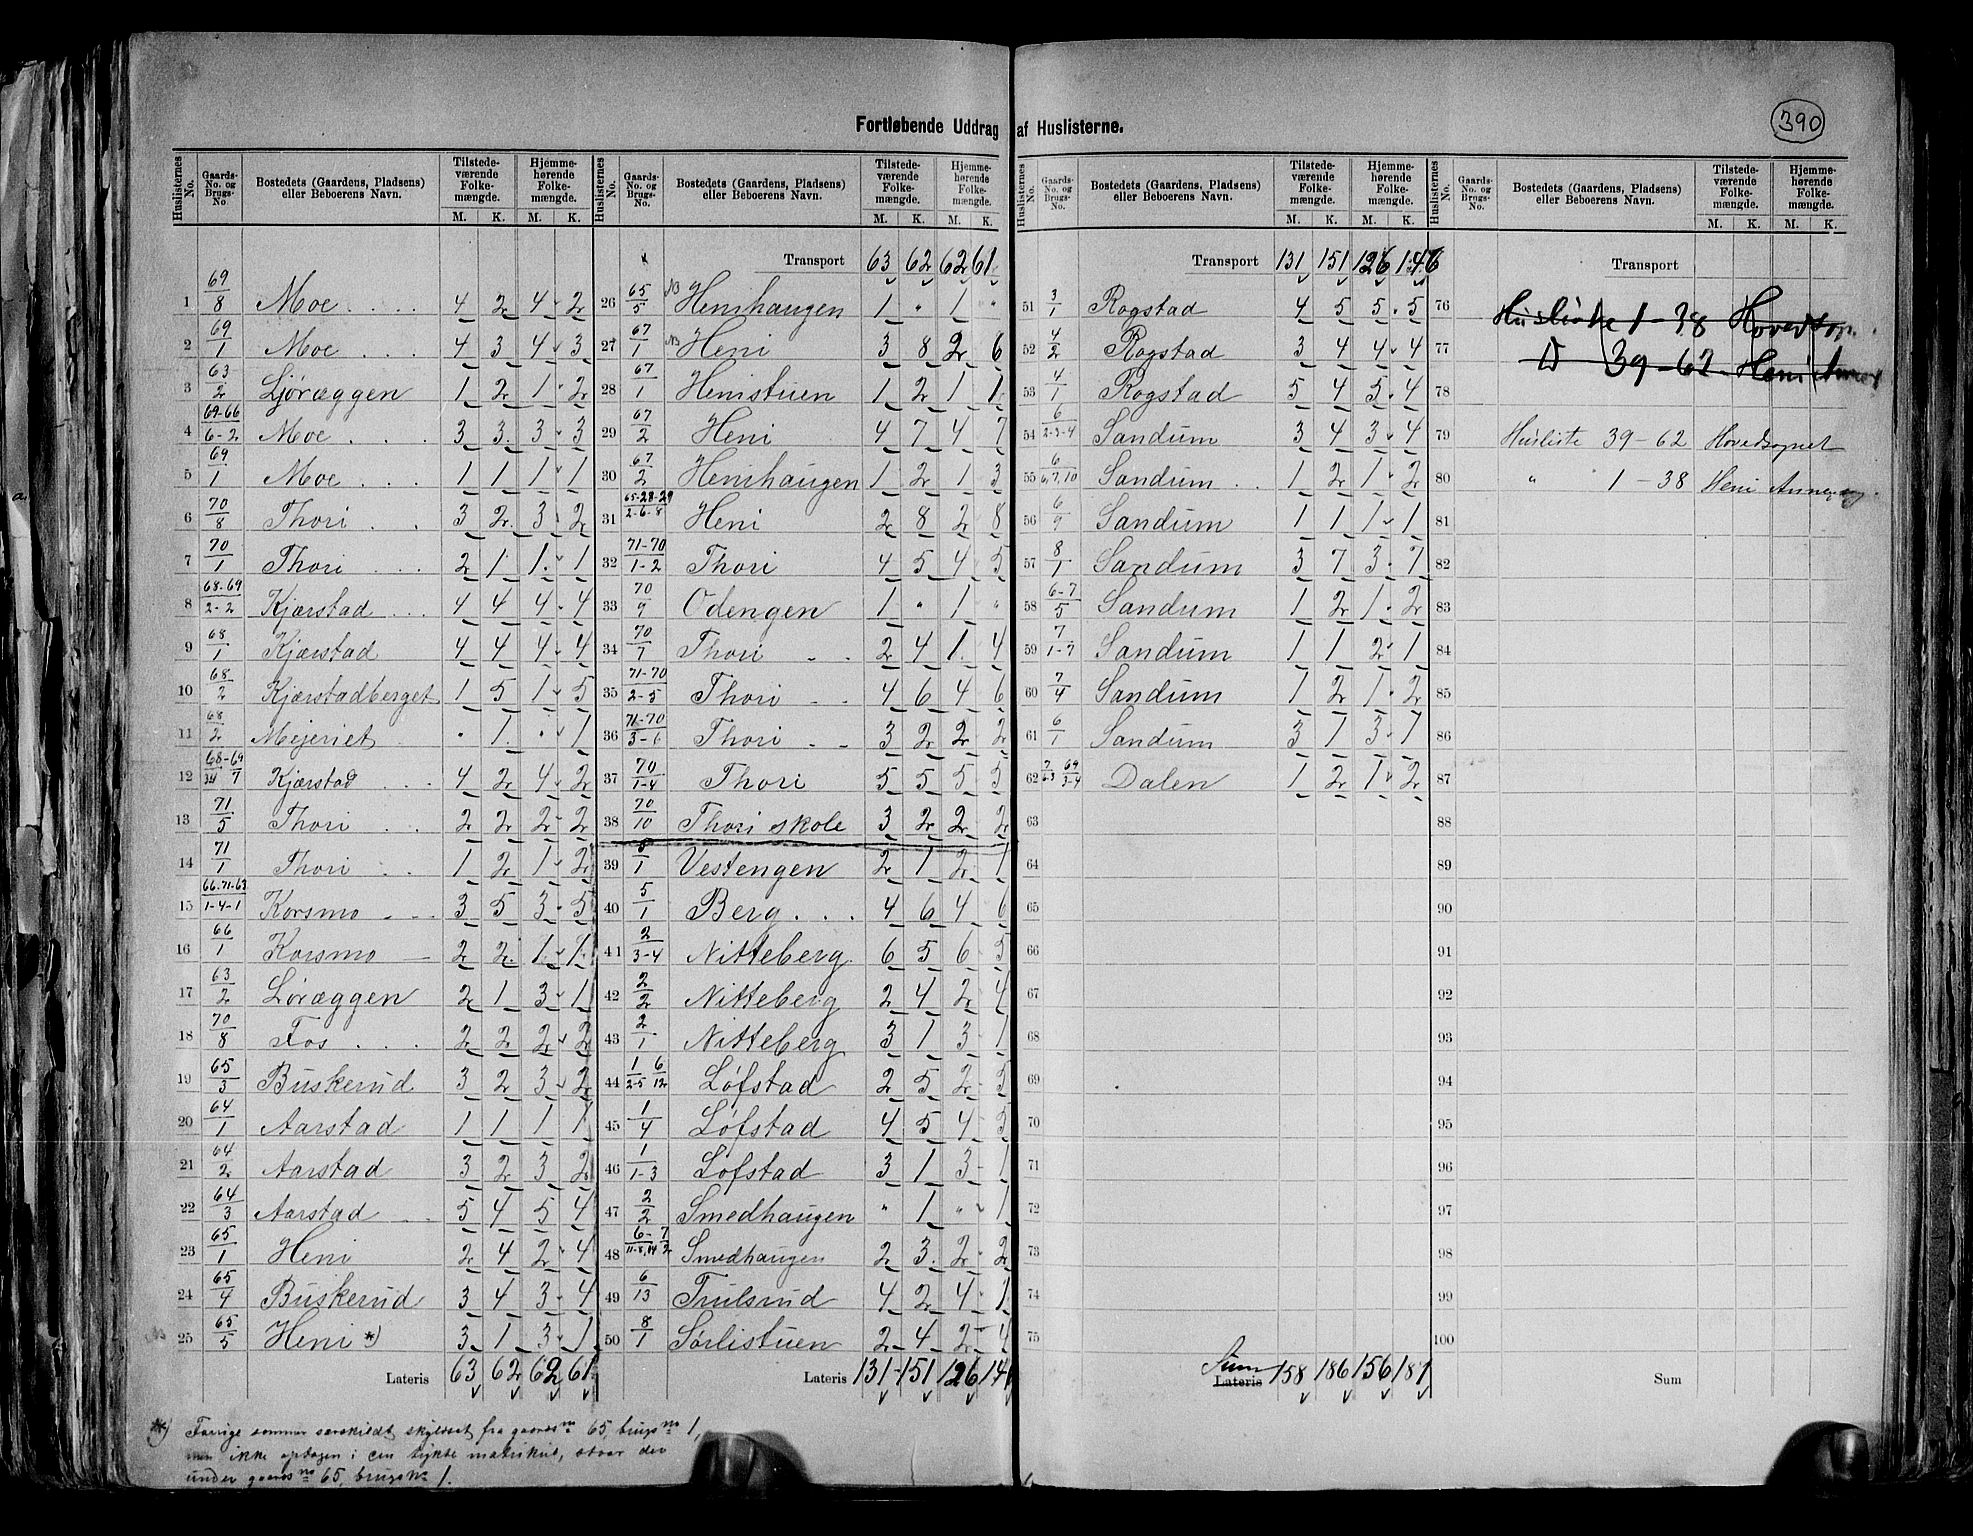 390
Fortløbende Uddrag af Huslisterne.
Huslisternes No. Gaards-No. og Brugs-No. Bostedets (Gaardens, Pladsens) eller Beboerens Navn. Tilstedeværende Folkemængde. M. K. Hjemmehørende Folkemængde. M. K.
1 69/8 Moe . . . . 4 2 4 2
2 69/1 Moe . . . 4 3 4 3
3 63/2 Ljøræggen 1 2 1 2
4 69-66/6-2 Moe . . . 3 3 3 3
5 69/1 Moe . . . 1 1 1 1
6 70/8 Thori . . 3 2 3 2
7 70/1 Thori . . . 2 1 1 1
8 68-69/2-2 Kjærstad . . . 4 4 4 4
9 68/1 Kjærstad 4 4 4 4
10 68/2 Kjærstadberget 1 5 1 5
11 68/2 Mejeriet . " 1 " 1
12 68-69/3,4 7 Kjærstad . . . 4 2 4 2
13 71/5 Thori . . 2 2 2 2
14 71/1 Thori . . 1 2 1 2
15 66-71-63/1-4-1 Korsmo - - - 3 5 3 5
16 66/1 Korsmo — 2 2 1 1
17 63/2 Løræggen 2 1 3 1
18 70/8 Fos . . . 2 2 2 2
19 65/3 Buskerud 3 2 3 2
20 64/1 Aarstad 1 1 1 1
21 64/2 Aarstad 3 2 3 2
22 64/3 Aarstad . . 5 4 5 4
23 65/1 Heni 2 4 2 4
24 65/4 Buskerud 3 4 3 4
25 65/5 Heni *) 3 1 3 1
Lateris 63 62 62 61
Huslisternes No. Gaards-No. og Brugs-No. Bostedets (Gaardens, Pladsens) eller Beboerens Navn. Tilstedeværende Folkemængde. M. K. Hjemmehørende Folkemængde. M. K.
Transport 63 62 62 61
26 65/5 NB Henihaugen 1 " 1 "
27 67/1 NB Heni 3 8 2 6
28 67/1 Henistuen 1 2 1 1
29 67/2 Heni 4 7 4 7
30 67/2 Henihaugen 1 2 1 3
31 65-28-29/2-6-8 Heni 2 8 2 8
32 71-70/1-2 Thori 4 5 4 5
33 70/9 Odengen 1 " 1 "
34 70/7 Thori - - 2 4 1 4
35 71-70/2-5 Thori - - 4 6 4 6
36 71-70/3-6 Thori - - 3 2 2 2
37 70/1-4 Thori 5 5 5 5
38 70/10 Thori skole 3 2 2 2
39 8/1 Vestengen 2 1 2 1
40 5/1 Berg . . . 4 6 4 6
41 2/3-4 Nitteberg 6 5 6 5
42 2/2 Nitteberg 2 4 2 4
43 2/1 Nitteberg 3 1 3 1
44 1/2-5 6/12 Løfstad 2 5 2 5
45 1/4 Løfstad 4 5 4 5
46 1/1-3 Løfstad 3 1 3 1
47 2/2 Smedhaugen " 1 " 1
48 6-7/11-8,14 2 Smedhaugen 2 3 2 2
49 6/13 Trulsrud 4 2 4 1
50 8/1 Sørlistuen 2 4 2 4
Lateris 131 151 126
Huslisternes No. Gaards-No. og Brugs-No. Bostedets (Gaardens, Pladsens) eller Beboerens Navn. Tilstedeværende Folkemængde. M. K. Hjemmehørende Folkemængde. M. K.
Transport 131 151 126 146
51 3/1 Rogstad 4 5 5 5
52 4/2 Rogstad 3 4 4 4
53 4/1 Rogstad 5 4 5 4
54 6/2-3-4 Sandum 3 4 3 4
55 6/6,7,10 Sandum . . 1 2 1 2
56 6/9 Sandum 1 1 1 1
57 8/1 Sandum 3 7 3 7
58 6-7/5 Sandum 1 2 1 2
59 7/1-7 Sandum 1 1 2 1
60 7/4 Sandum 1 2 1 2
61 6/1 Sandum 3 1 3 1
62 7/6-3 69/3-4 Dalen 1 2 1 2
63
64
65
66
67
68
69
70
71
72
73
74
75
Sum Lateris 158 186 156 181
Huslisternes No. Gaards-No. og Brugs-No. Bostedets (Gaardens, Pladsens) eller Beboerens Navn. Tilstedeværende Folkemængde. M. K. Hjemmehørende Folkemængde. M. K.
Transport
76 Husliste 1-38 Hovedsogn.
77 D 39-62 Heni Annex
78
79 Husliste 39-62 Hovedsognet
80 " 1-38 Heni Annexsogn.
81
82
83
84
85
86
87
88
89
90
91
92
93
94
96
97
98
99
100
Sum
*) Forrige sommer særskildt skyldsat fra gaards no 65, brugs no 1,
men ikke optagen i den trykte matrikul, staar der
under gaards no 65, brugs no 1.